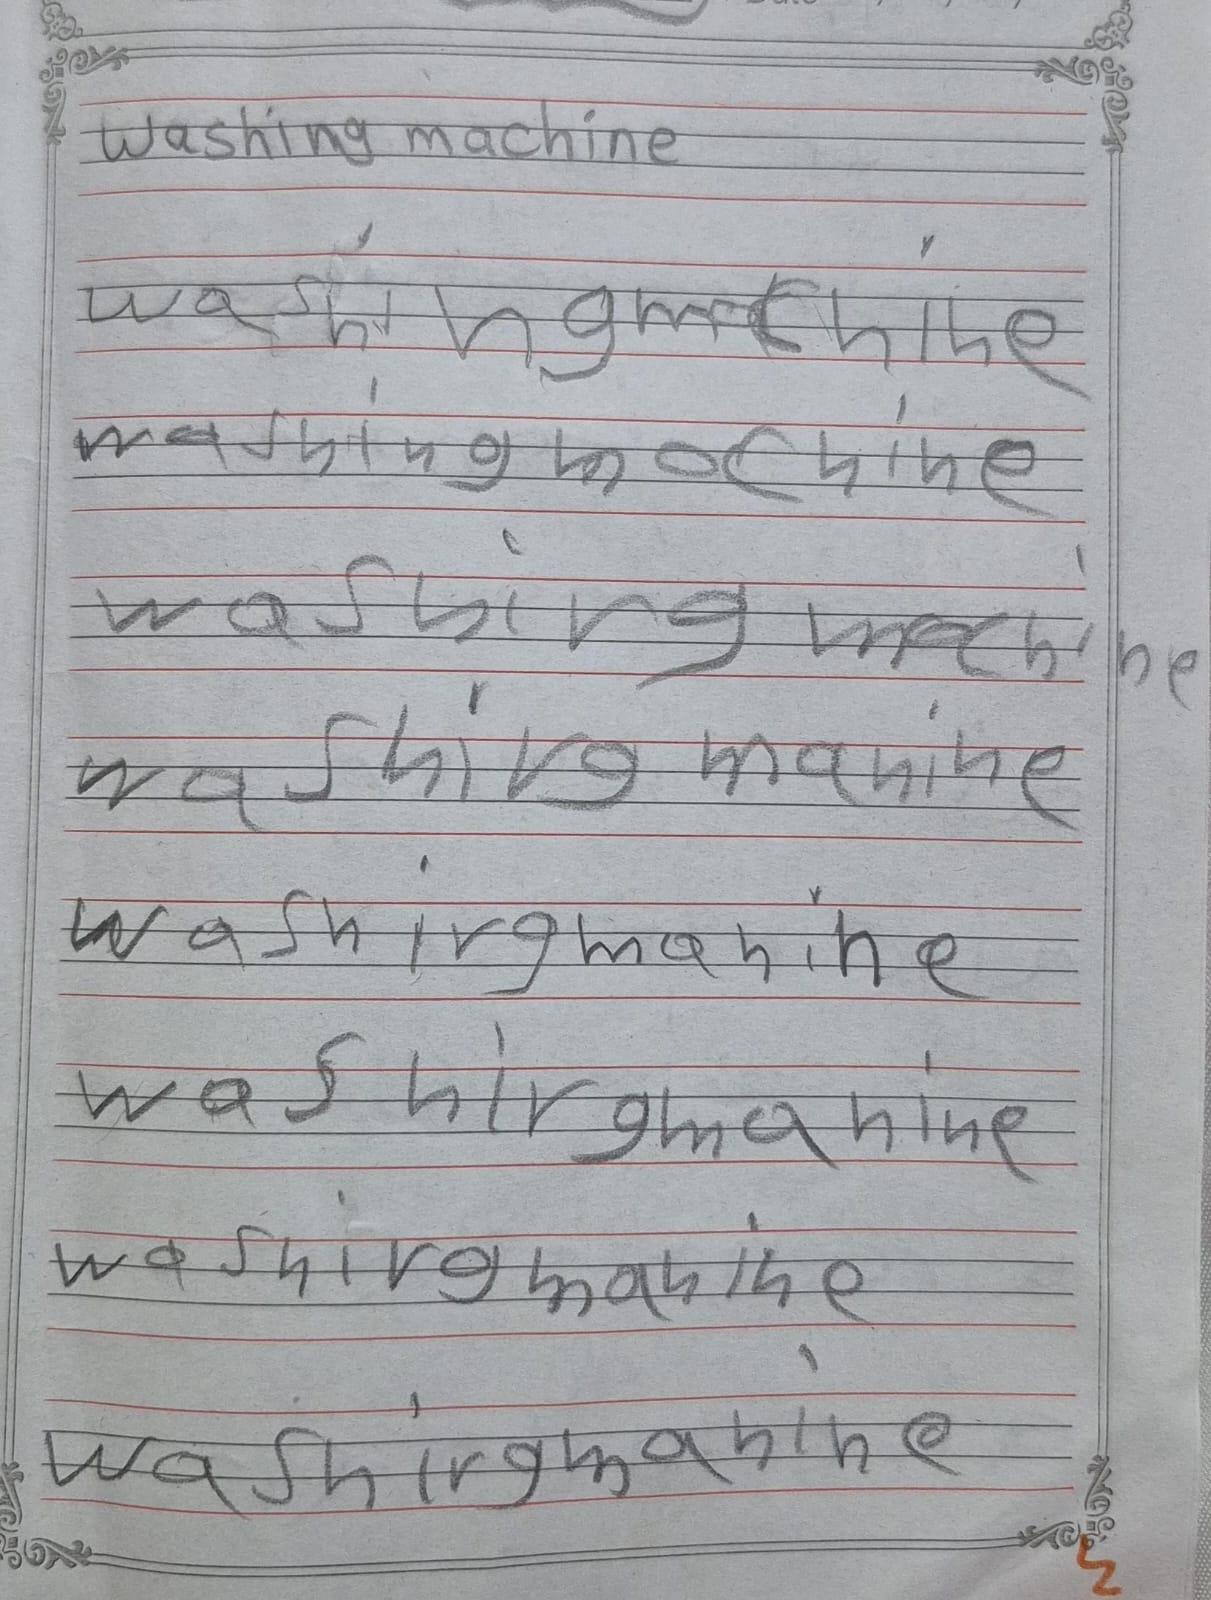 washing machine
washingmachine
washing mochine
washirg machine
washirg manine
washirgmanine
washirgmanine
washirgmanine
washirgmanine